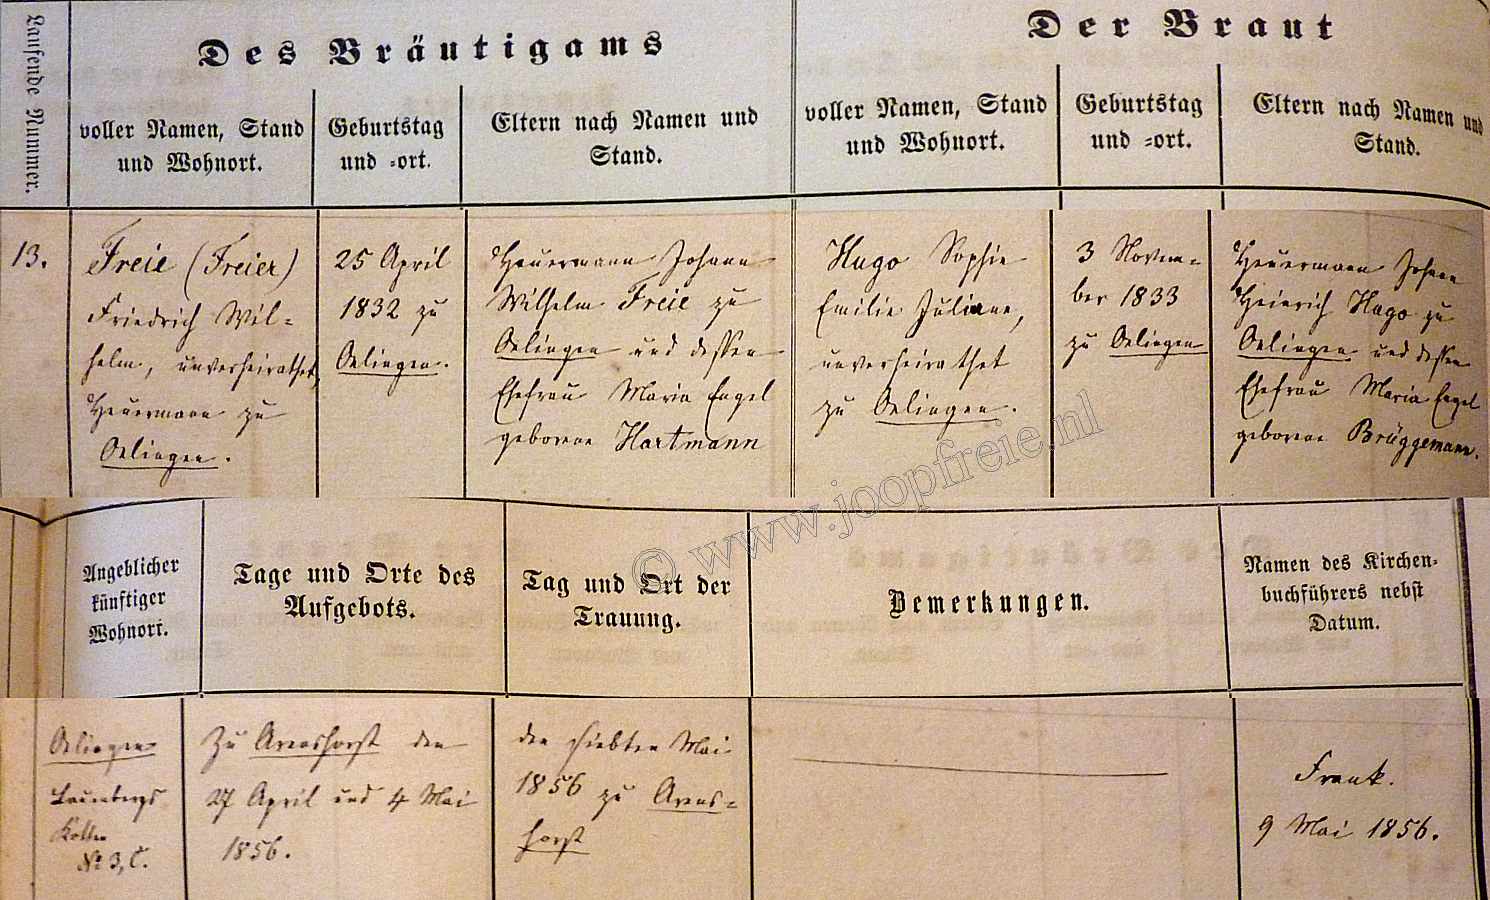 Laufende Nummer.
Des Bräutigams
Der Braut
voller Namen, Stand
und Wohnort.
Geburtstag
und =ort.
Eltern nach Namen und
Stand.
voller Namen, Stand
und Wohnort.
Geburtstag
und =ort.
Eltern nach Namen und
Stand.
13.
Freie (Freier)
Friedrich Wil=
helm, unverheirathet,
Heuermann zu
Oelingen.
25 April
1832 zu
Oelingen.
Heuermann Johann
Wilhelm Freie zu
Oelingen und dessen
Ehefrau Maria Engel
geborene Hartmann
Hugo Sophie
Emilie Juliane,
unverheirathet
zu Oelingen.
3 Novem=
ber 1833
zu Oelingen
Heuermann Johann
Heinrich Hugo zu
Oelingen und dessen
Ehefrau Maria Engel
geborene Brüggemann.
© www.joopfreie.nl
Angeblicher
künftiger
Wohnort.
Tage und Orte des
Aufgebots.
Tag und Ort der
Trauung.
Bemerkungen.
Namen des Kirchen=
buchführers nebst
Datum.
Oelingen
Kotten
№ 3, C.
Zu Arenshorst den
27 April und 4 Mai
1856.
den siebten Mai
1856 zu Arens=
horst
Frank.
9 Mai 1856.